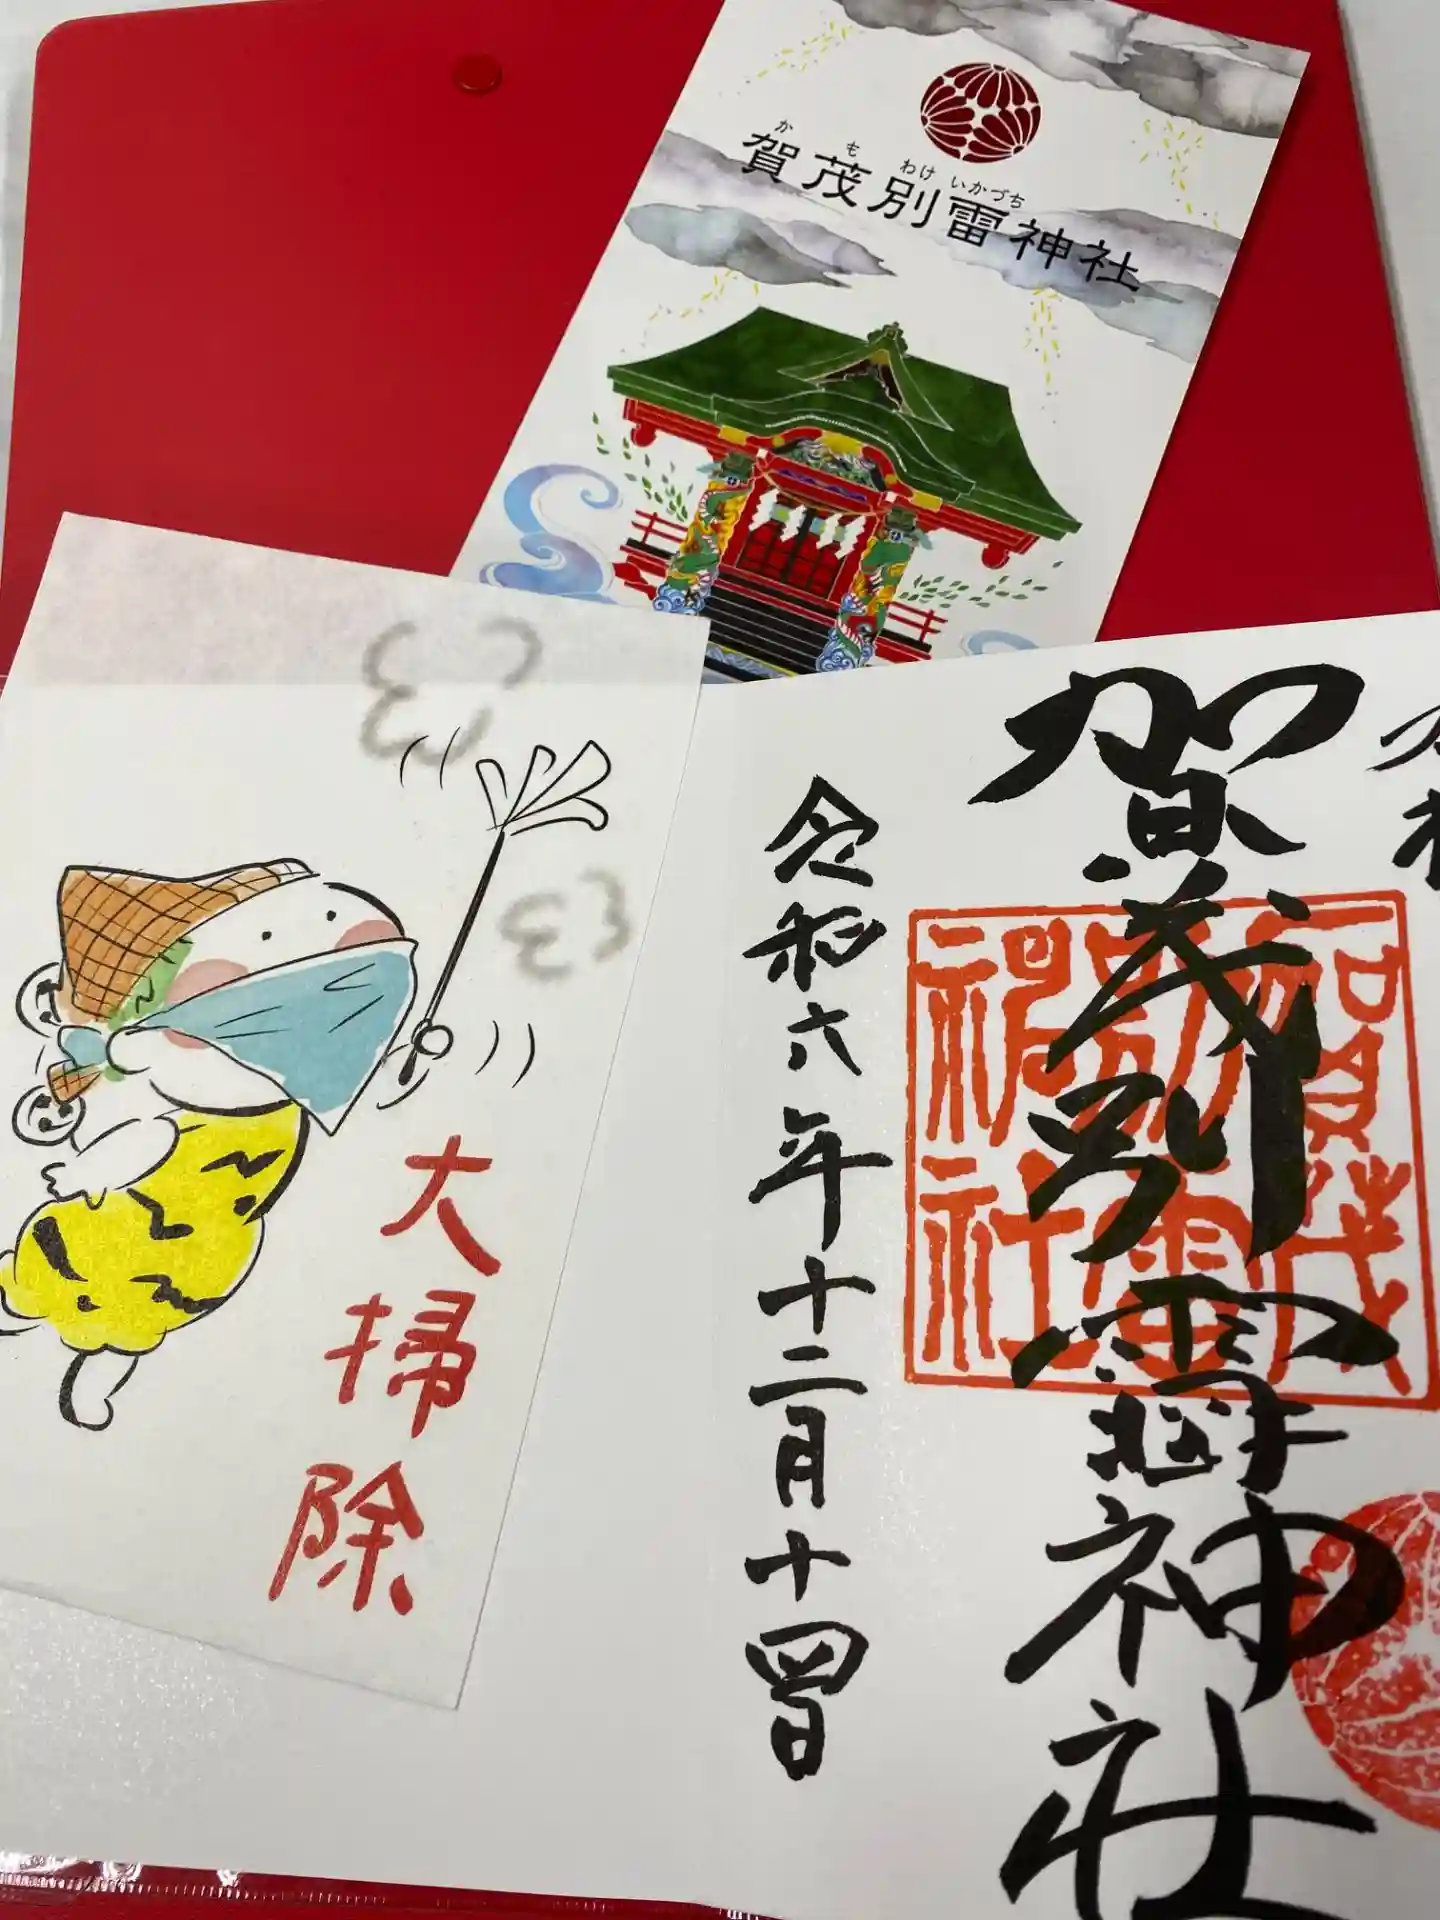 か も わけ いかづち
賀茂別雷神社
賀茂別雷神社
令和六年十二月十四日
賀茂
別雷
神社
大掃除